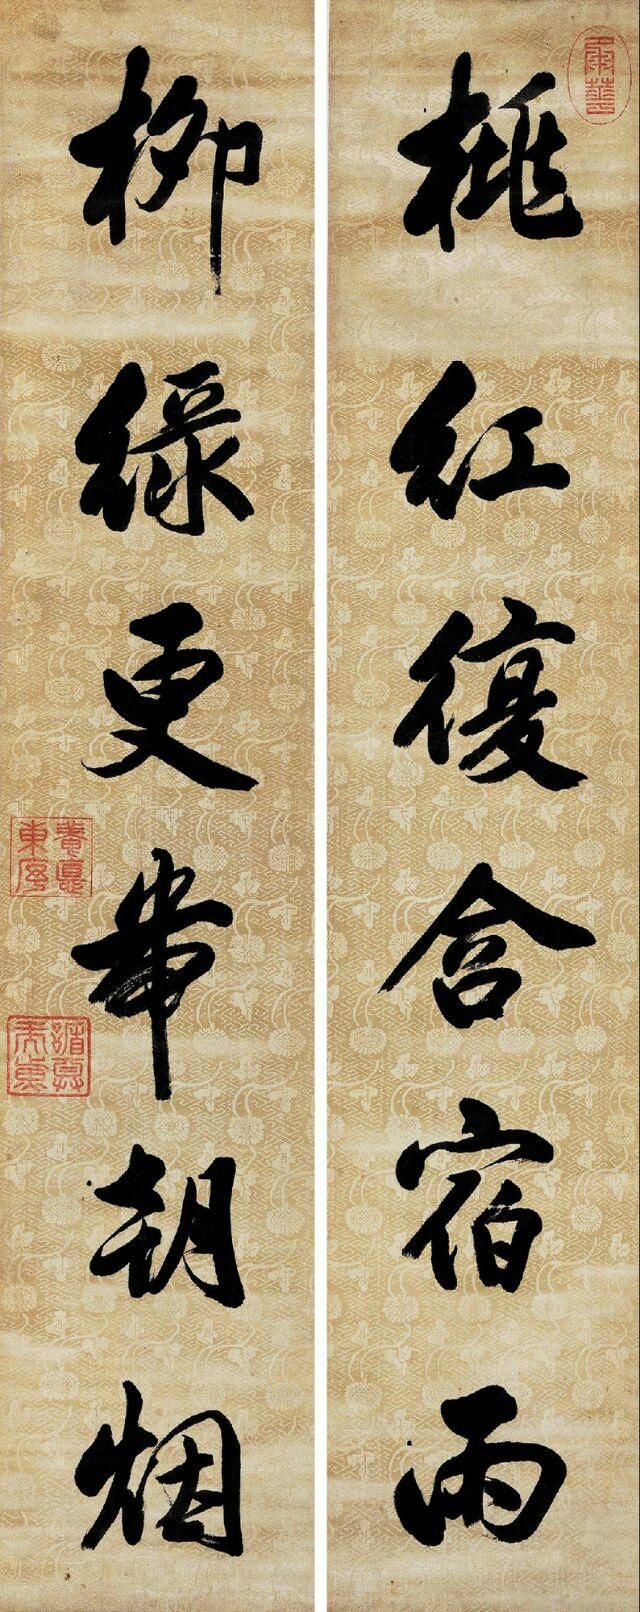 桃紅復含宿雨
柳綠更帶朝烟